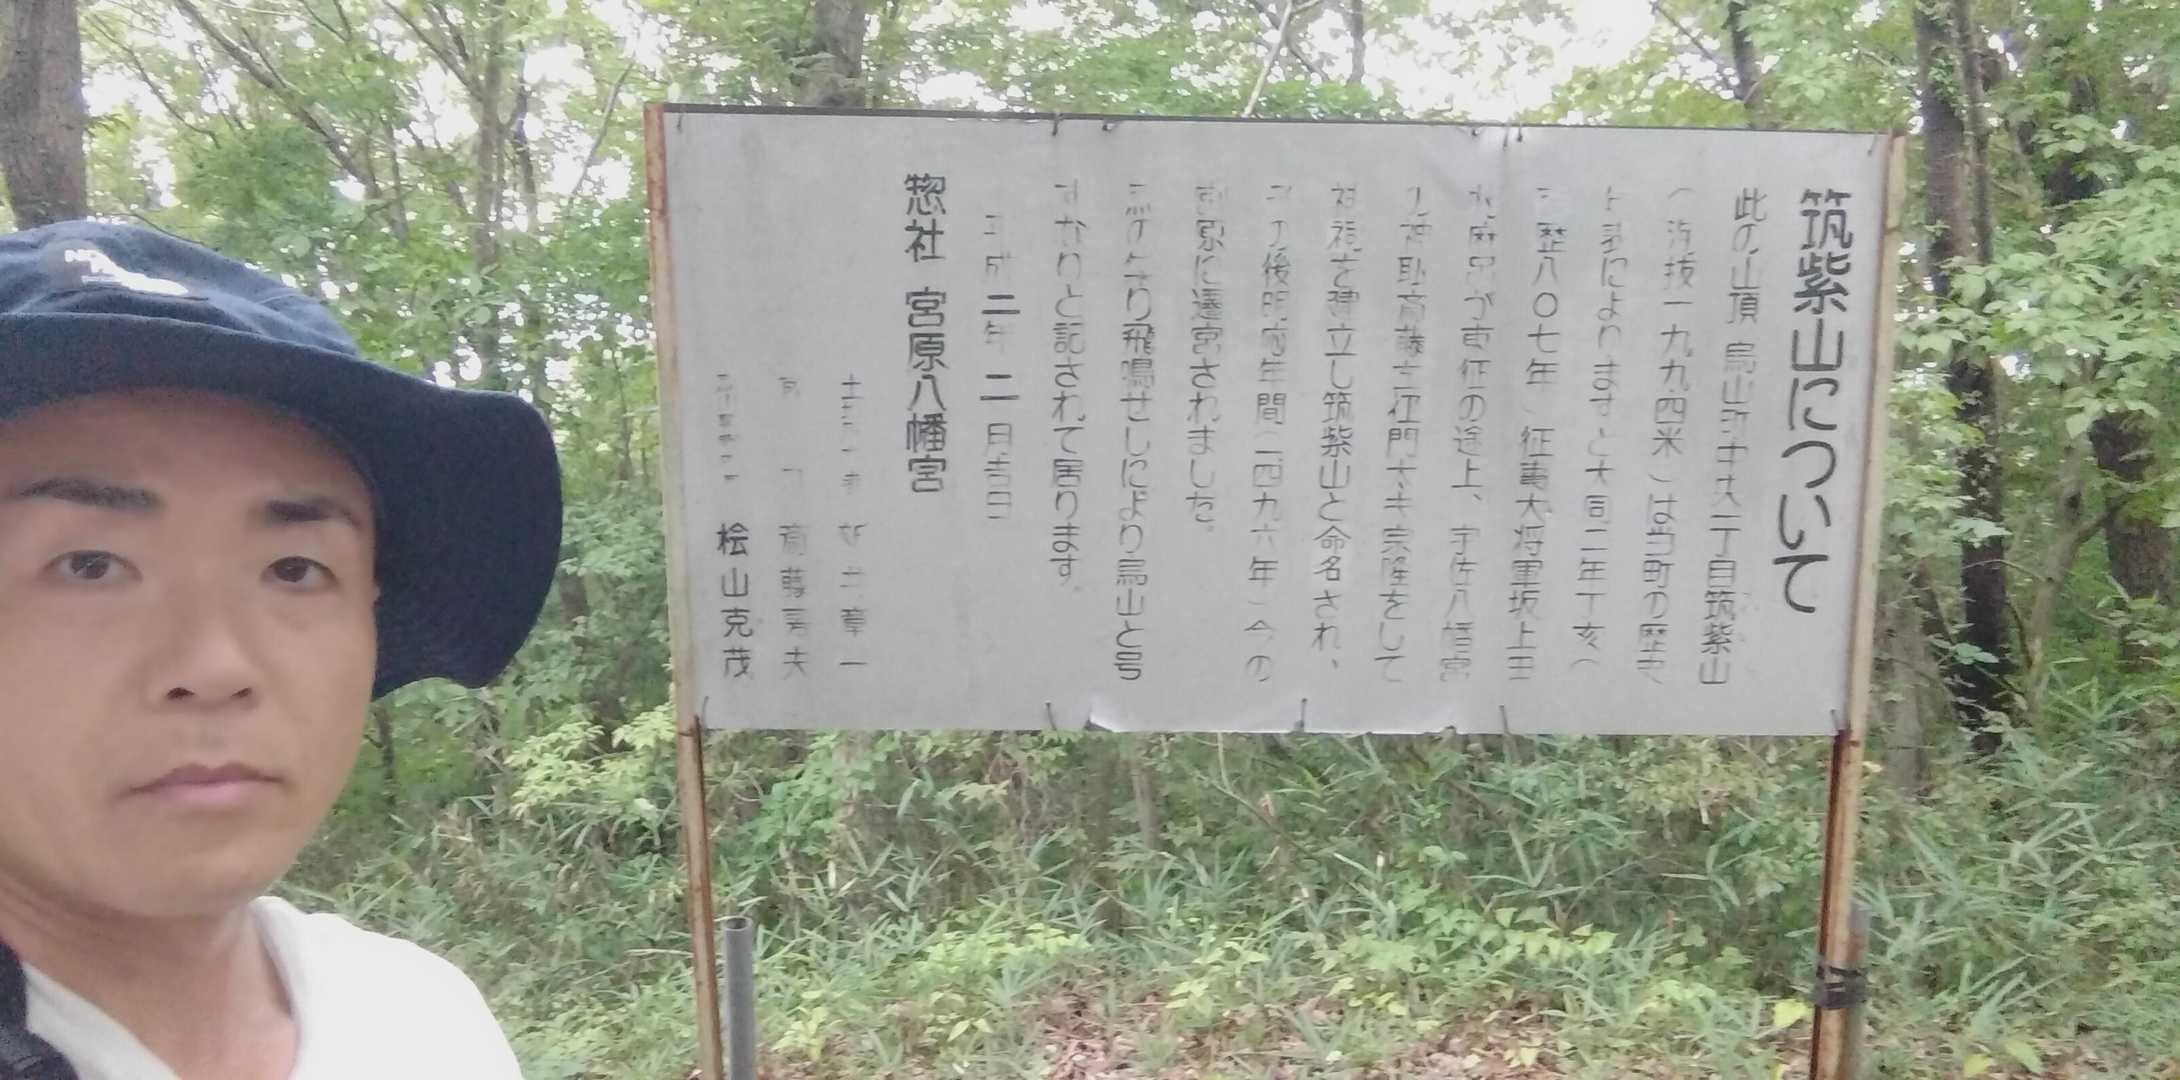 筑紫山について
此の山頂 烏山町中央二丁目筑紫山
(海抜一九九四米)は当町の歴史
によりますと大同二年丁亥(
西歴八〇七年)征夷大将軍坂上田
麻呂が東征の途上、宇佐八幡宮
の神耻斎藤左衛門大夫宗隆をして
祠を建立し筑紫山と命名され、
その後明応年間(一四九六年)今の
宮原に遷宮されました。
より飛鳴せしにより烏山と号
すなりと記されて居ります。
平成二年二月吉日
惣社 宮原八幡宮
章一
斎藤房夫
桧山克茂